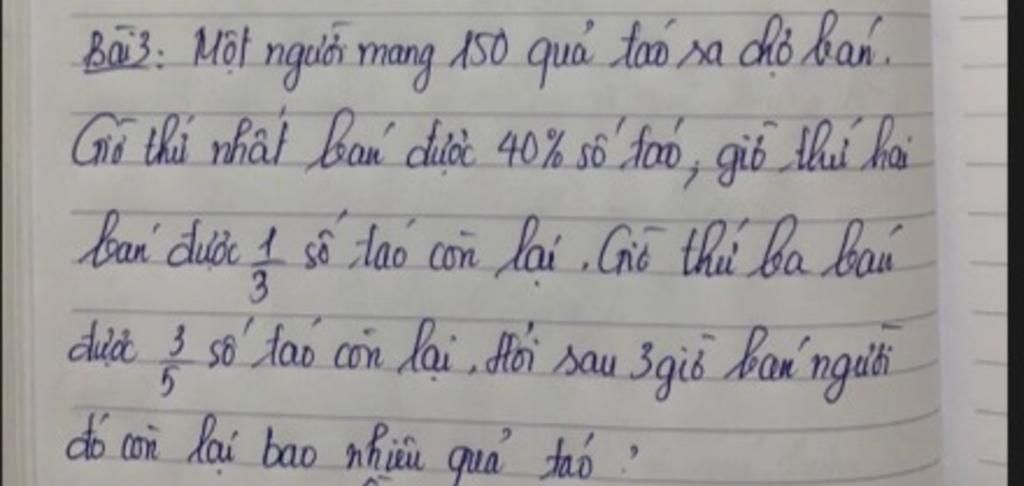 Bài 3: Một người mang 150 quả táo ra chợ bán.
Giờ thứ nhất bán được 40% số táo, giờ thứ hai
bán được 1/3 số táo còn lại. Giờ thứ ba bán
được 3/5 số táo còn lại. Hỏi sau 3 giờ bán người
đó còn lại bao nhiêu quả táo?